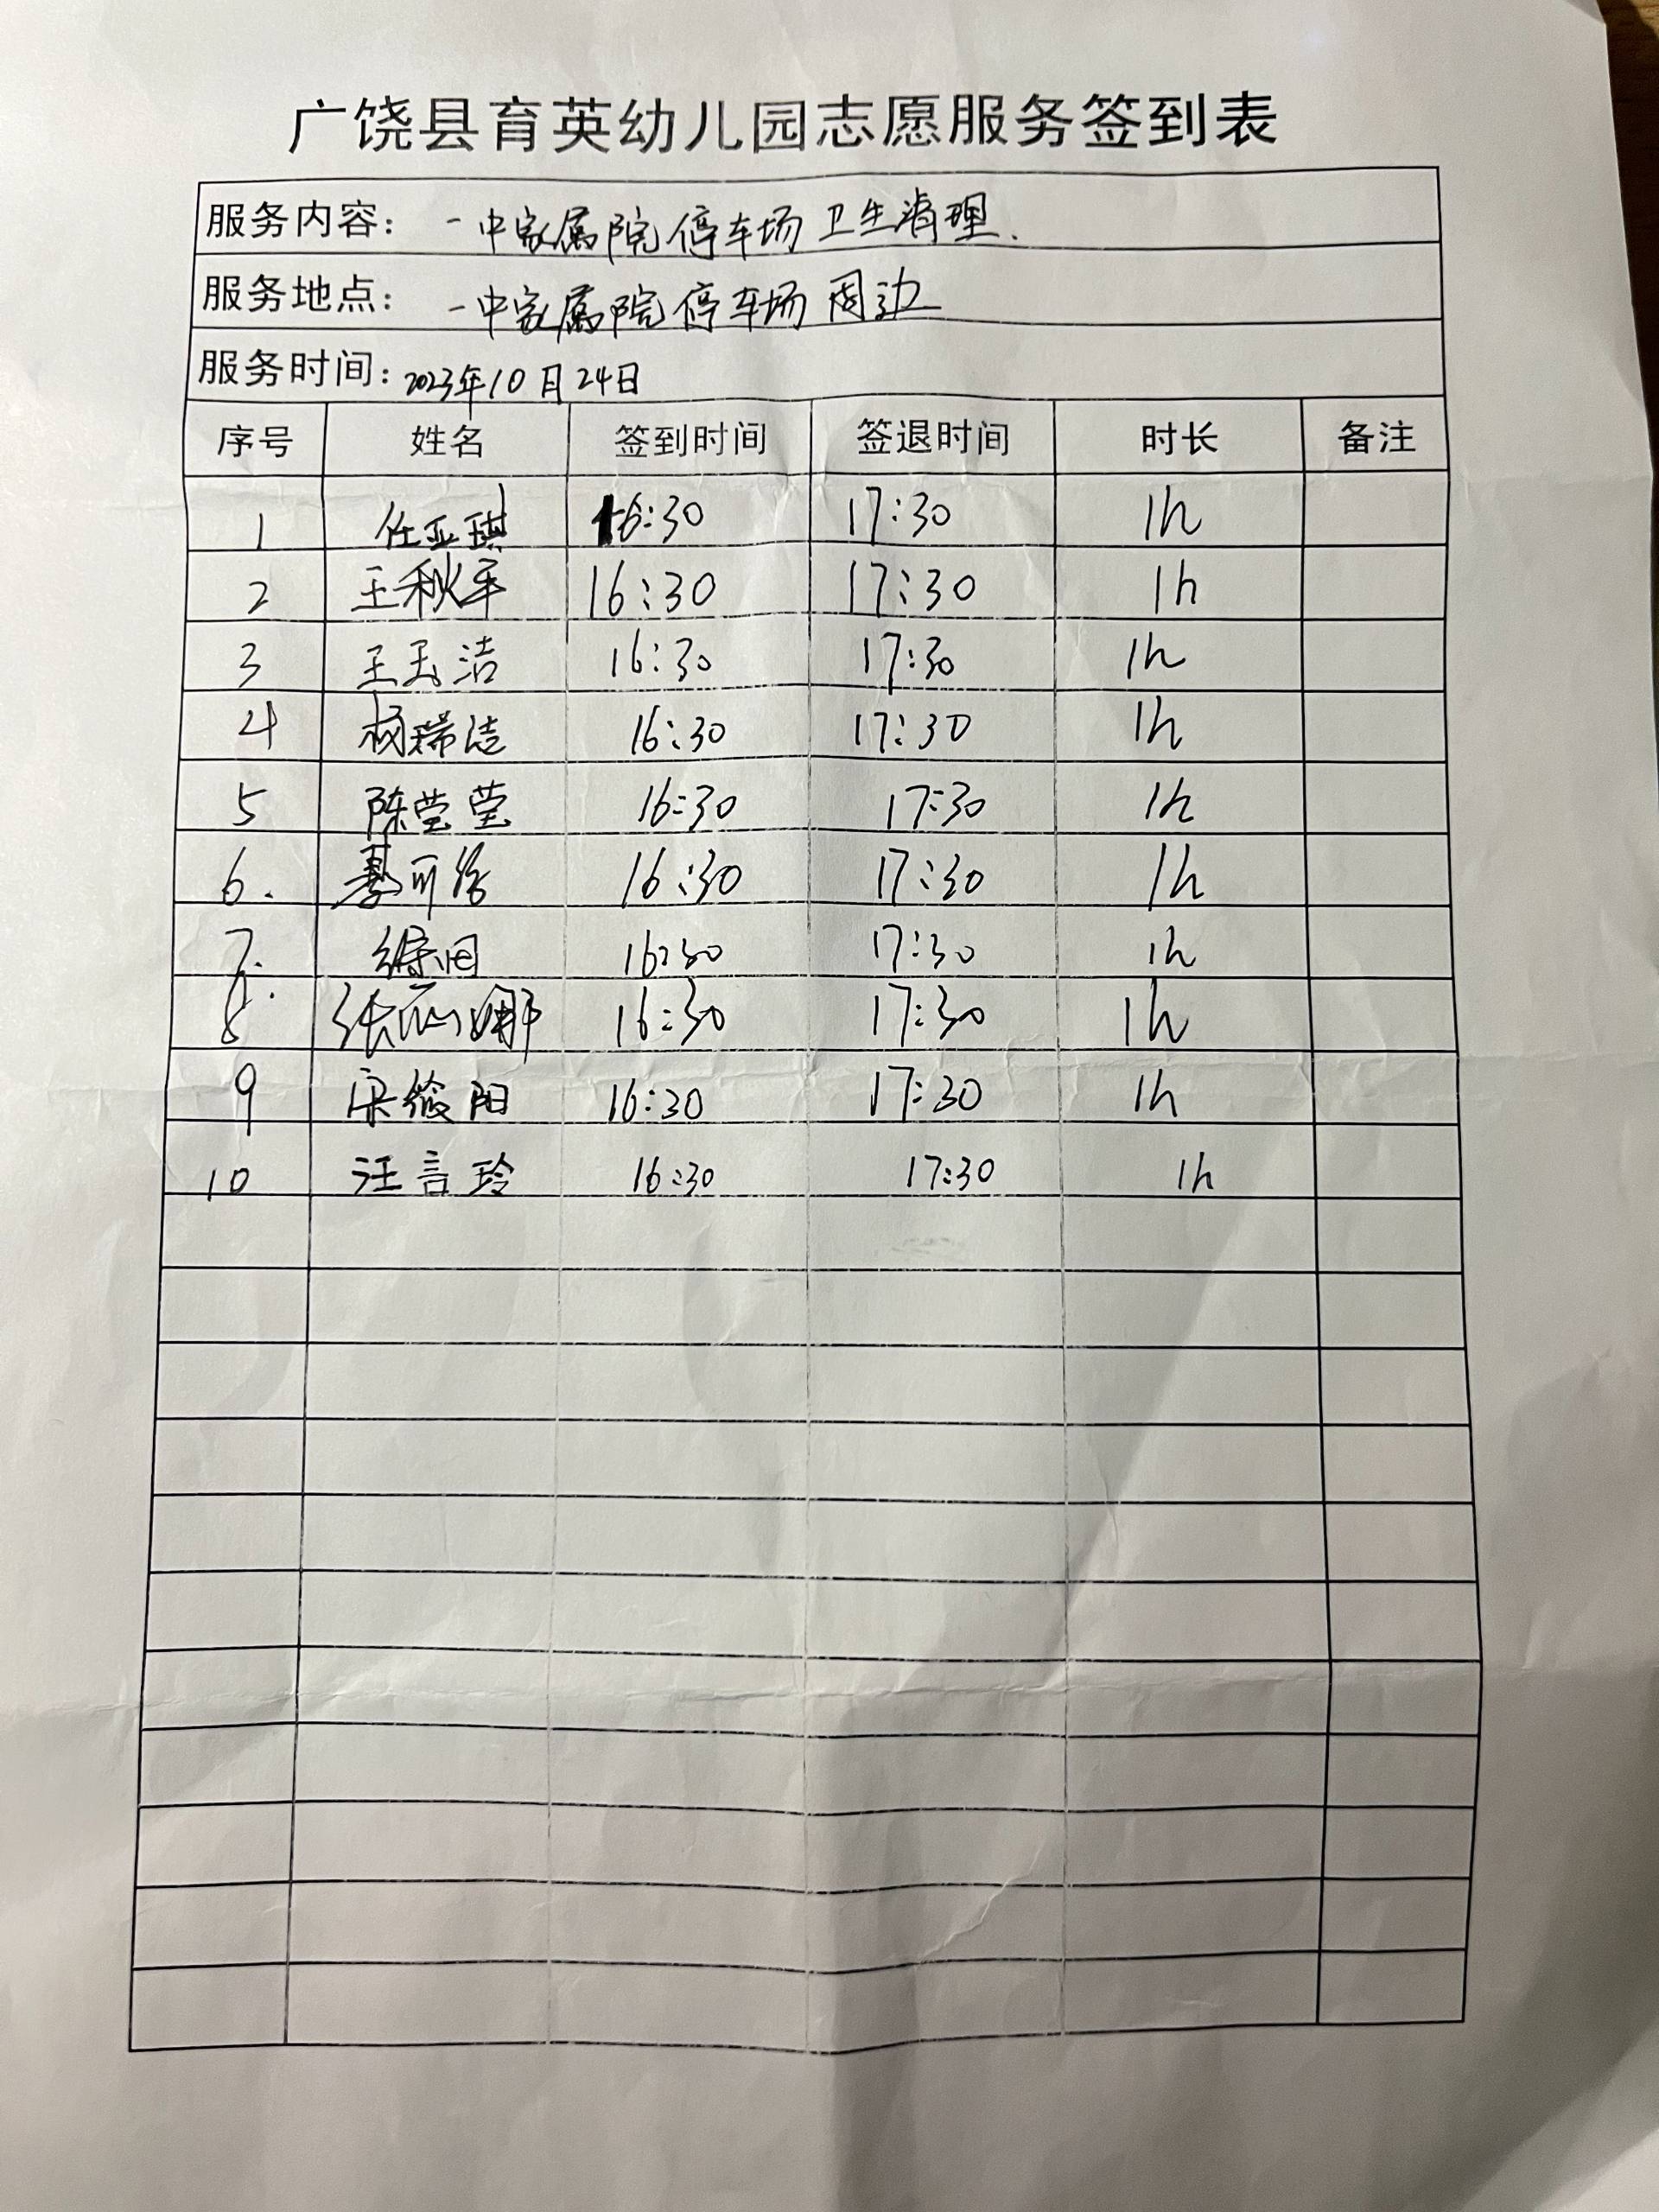 广饶县育英幼儿园志愿服务签到表
服务内容： 一中家属院停车场卫生清理.
服务地点： 一中家属院停车场周边
服务时间：2023年10月24日
序号 姓名 签到时间 签退时间 时长 备注
1 任亚琪 16:30 17:30 1h
2 王秋平 16:30 17:30 1h
3 王玉洁 16:30 17:30 1h
4 杨瑞洁 16:30 17:30 1h
5 陈莹莹 16:30 17:30 1h
6. 可 16:30 17:30 1h
7. 16:30 17:30 1h
8. 张 娜 16:30 17:30 1h
9 宋 阳 16:30 17:30 1h
10 汪言玲 16:30 17:30 1h